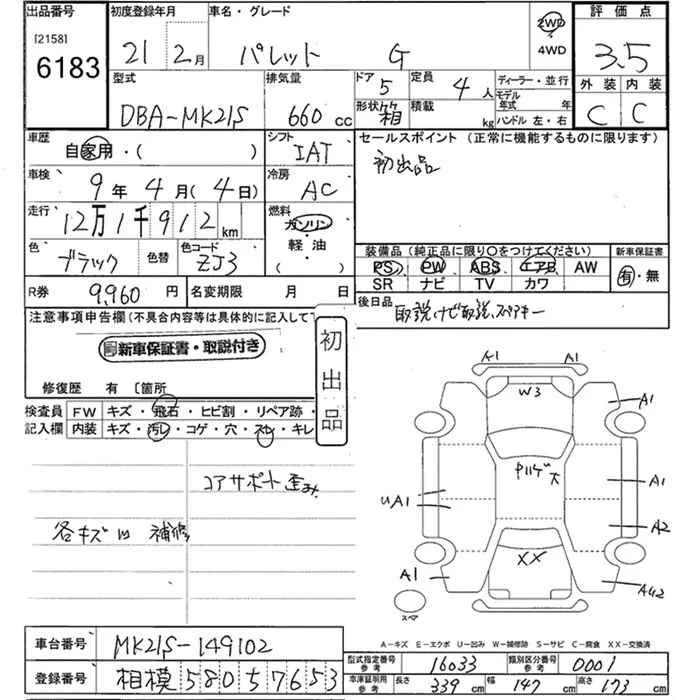 出品番号 初度登録年月 車名・グレード 評価点
[2158]
6183
21 2月 パレット G 2WD 4WD 3.5
型式 排気量 ドア 5 定員 4人 ディーラー・並行 外装 内装
DBA-MK21S 660cc 形状 箱 積載 kg モデル年式 年 ハンドル 左・右 C C
車歴 シフト セールスポイント (正常に機能するものに限ります)
自家用・( ) IAT 初出品
車検 9年4月(4日) 冷房 AC
走行 12万1千912km 燃料 ガソリン・軽油 ( )
色 ブラック 色替 色コード ZJ3
装備品 (純正品に限り○をつけてください) 新車保証書
PS PW ABS エアB AW 有・無
SR ナビ TV カワ
R券 9,960円 名変期限 月 日 後日品
取説、ナビ取説、スペアキー
注意事項申告欄(不具合内容等は具体的に記入して下
新車保証書・取説付き
初出品
修復歴 有 〔箇所
検査員 FW キズ・飛石・ヒビ割・リペア跡・
記入欄 内装 キズ・汚レ・コゲ・穴・スレ・キレ
コアサポート歪み
各キズ凹 補修
A1 A1
W3
A1
UA1
A1
A2
XX
A1
AU2
スペア
A-キズ E-エクボ U-凹み W-補修跡 S-サビ C-腐食 XX-交換済
車台番号 MK21S-149102
型式指定番号 参考 16033 類別区分番号 参考 0001
登録番号 相模580 57653
車庫証明用 参考 長さ 339cm 幅 147cm 高さ 173cm